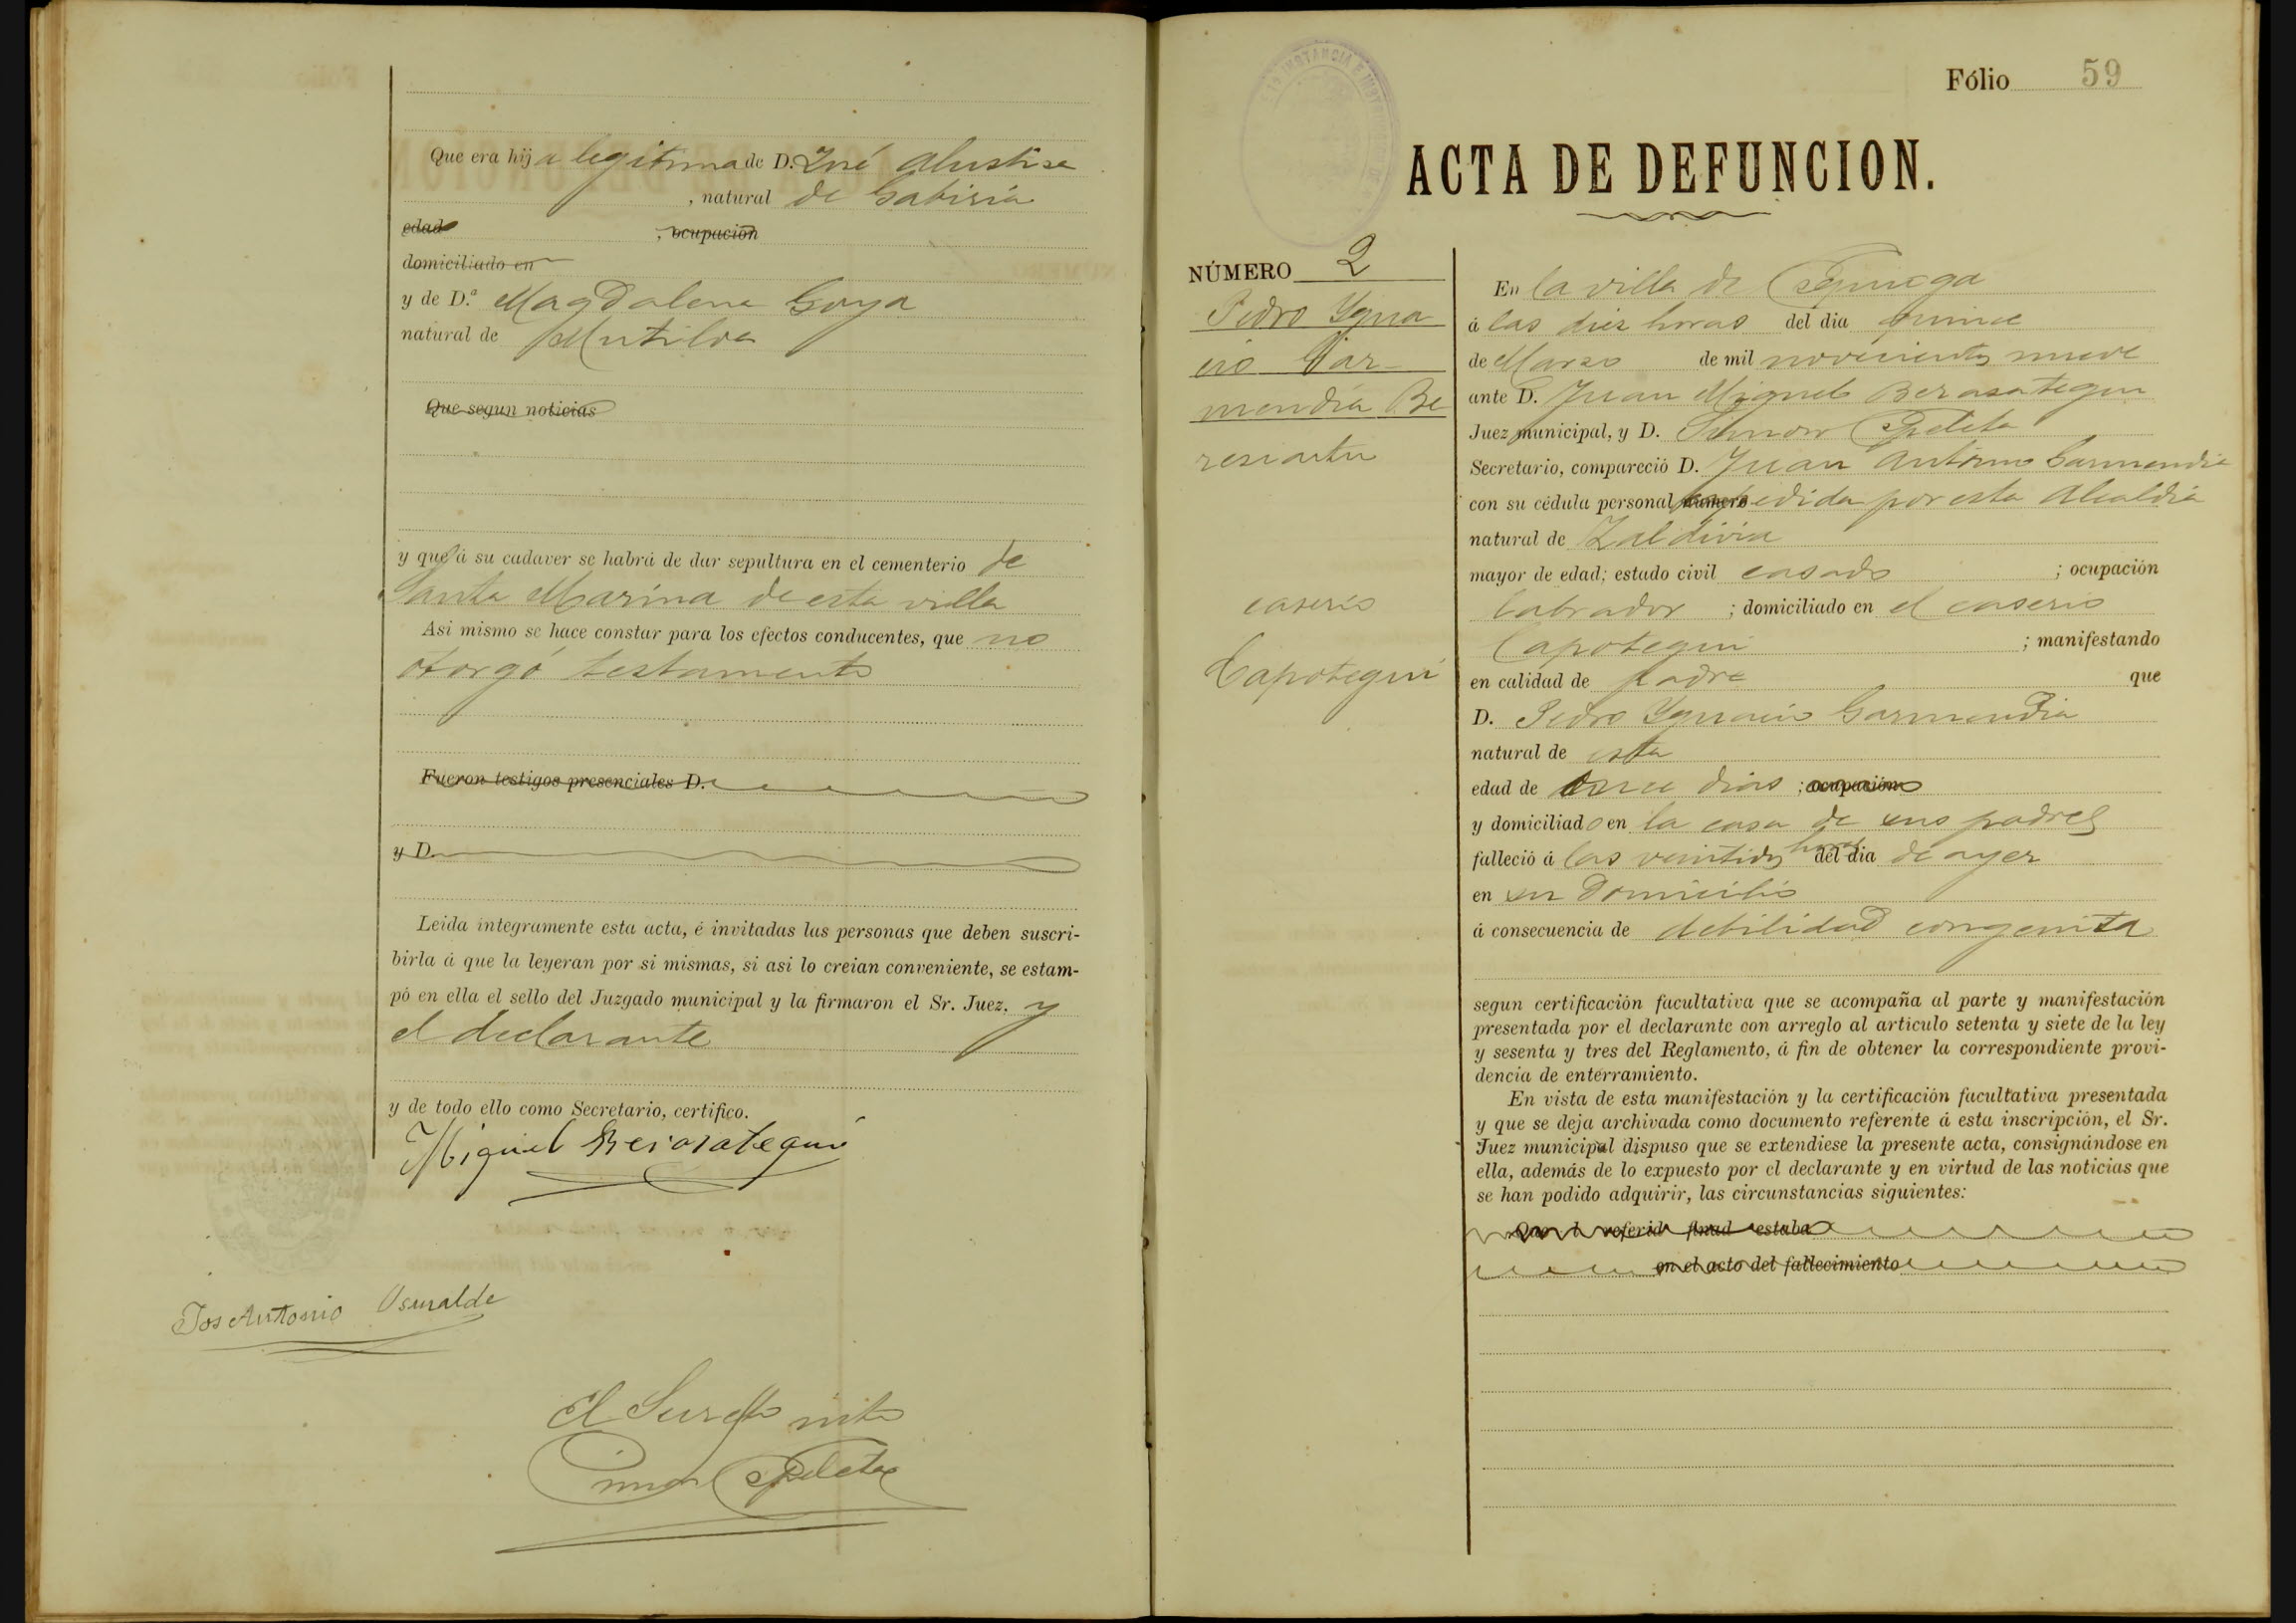 Que era hija legitima de D. José Alustiza
, natural de Gabiria
edad , ocupación
domiciliado en
y de D.ª Magdalena Goya
natural de Mutiloa
Que segun noticias
y que á su cadaver se habrá de dar sepultura en el cementerio de
Santa Marina de esta villa
Asi mismo se hace constar para los efectos conducentes, que no
otorgó testamento
Fueron testigos presenciales D.
y D.
Leida integramente esta acta, é invitadas las personas que deben suscri-
birla á que la leyeran por si mismas, si asi lo creian conveniente, se estam-
pó en ella el sello del Juzgado municipal y la firmaron el Sr. Juez, y
el declarante
y de todo ello como Secretario, certifico.
Miguel Berasategui
José Antonio Usuralde
El
Simon
Fólio 59
ACTA DE DEFUNCION.
NÚMERO 2
Pedro Ygna
cio Gar-
mendia Be
resiartu
caserio
Capotegui
En la villa de
á las diez horas del dia quince
de Marzo de mil novecientos nueve
ante D. Juan Miguel Berasategui
Juez municipal, y D. Simon
Secretario, compareció D. Juan Antonio Garmendia
con su cédula personal número expedida por esta Alcaldia
natural de Zaldivia
mayor de edad; estado civil casado ; ocupación
labrador ; domiciliado en el caserio
Capotegui ; manifestando
en calidad de padre que
D. Pedro Ygnacio Garmendia
natural de esta
edad de once dias ; ocupación
y domiciliado en la casa de sus padres
falleció á las veintidos horas del dia de ayer
en su domicilio
á consecuencia de debilidad congenita
segun certificación facultativa que se acompaña al parte y manifestación
presentada por el declarante con arreglo al articulo setenta y siete de la ley
y sesenta y tres del Reglamento, á fin de obtener la correspondiente provi-
dencia de enterramiento.
En vista de esta manifestación y la certificación facultativa presentada
y que se deja archivada como documento referente á esta inscripción, el Sr.
Juez municipal dispuso que se extendiese la presente acta, consignándose en
ella, además de lo expuesto por el declarante y en virtud de las noticias que
se han podido adquirir, las circunstancias siguientes:
Que l referid finad estaba
en el acto del fallecimiento